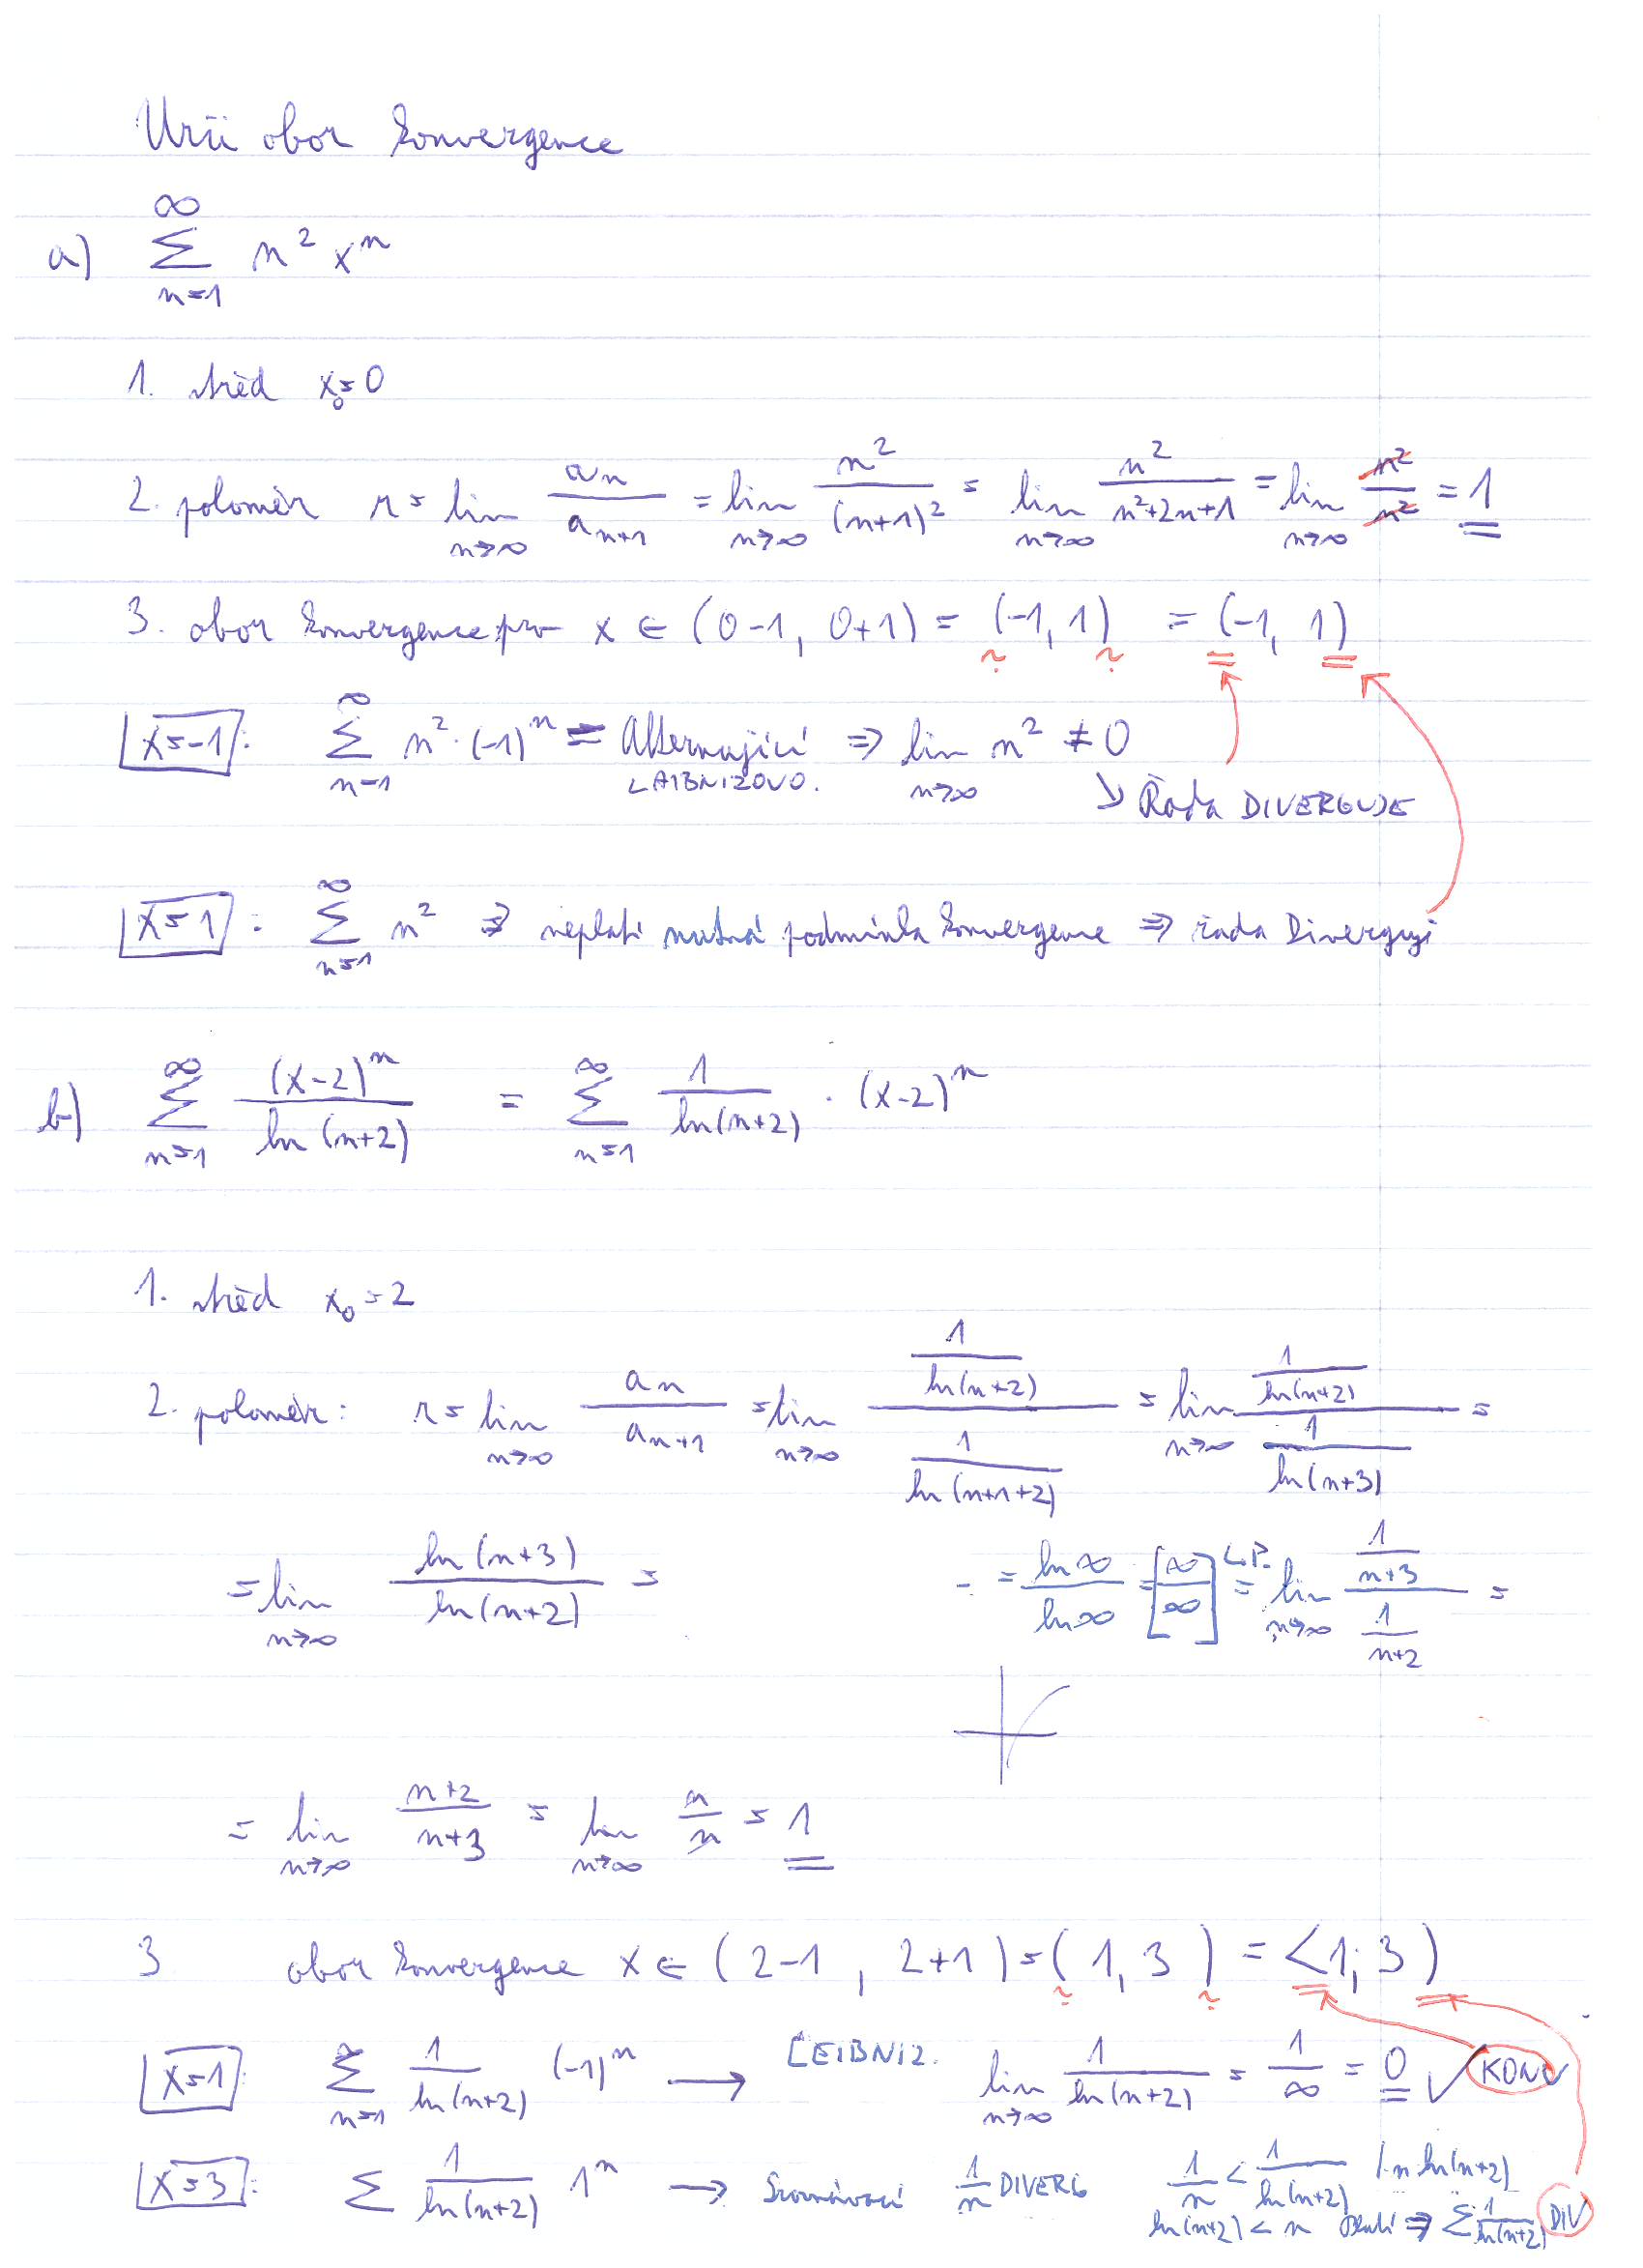 Urči obor konvergence
a) ∑_{n=1}^{∞} n² xⁿ
1. střed x₀=0
2. poloměr r = lim_{n→∞} aₙ/aₙ₊₁ = lim_{n→∞} n²/(n+1)² = lim_{n→∞} n²/(n²+2n+1) = lim_{n→∞} n²/n² = 1
3. obor konvergence pro x ∈ (0-1, 0+1) = (-1, 1) = (-1, 1)
x=-1: ∑_{n=1}^{∞} n²·(-1)ⁿ = Alternující ⇒ lim_{n→∞} n² ≠ 0
LAIBNIZOVO. ↘ Řada DIVERGUJE
x=1: ∑_{n=1}^{∞} n² ⇒ neplatí nutná podmínka konvergence ⇒ řada Diverguji
b) ∑_{n=1}^{∞} (x-2)ⁿ/ln(n+2) = ∑_{n=1}^{∞} 1/ln(n+2) · (x-2)ⁿ
1. střed x₀=2
2. poloměr: r = lim_{n→∞} aₙ/aₙ₊₁ = lim_{n→∞} (1/ln(n+2))/(1/ln(n+1+2)) = lim_{n→∞} (1/ln(n+2))/(1/ln(n+3)) =
= lim_{n→∞} ln(n+3)/ln(n+2) = - = ln∞/ln∞ = [∞/∞] L.P. = lim_{n→∞} (1/(n+3))/(1/(n+2)) =
= lim_{n→∞} (n+2)/(n+3) = lim_{n→∞} n/n = 1
3 obor konvergence x ∈ (2-1, 2+1) = (1, 3) = <1; 3)
x=1: ∑_{n=1}^{∞} 1/ln(n+2) (-1)ⁿ → LEIBNIZ. lim_{n→∞} 1/ln(n+2) = 1/∞ = 0 ✓ KONV
x=3: ∑ 1/ln(n+2) 1ⁿ → Srovnávací 1/n DIVERG 1/n < 1/ln(n+2) /·n·ln(n+2)
ln(n+2) < n platí ⇒ ∑ 1/ln(n+2) DIV